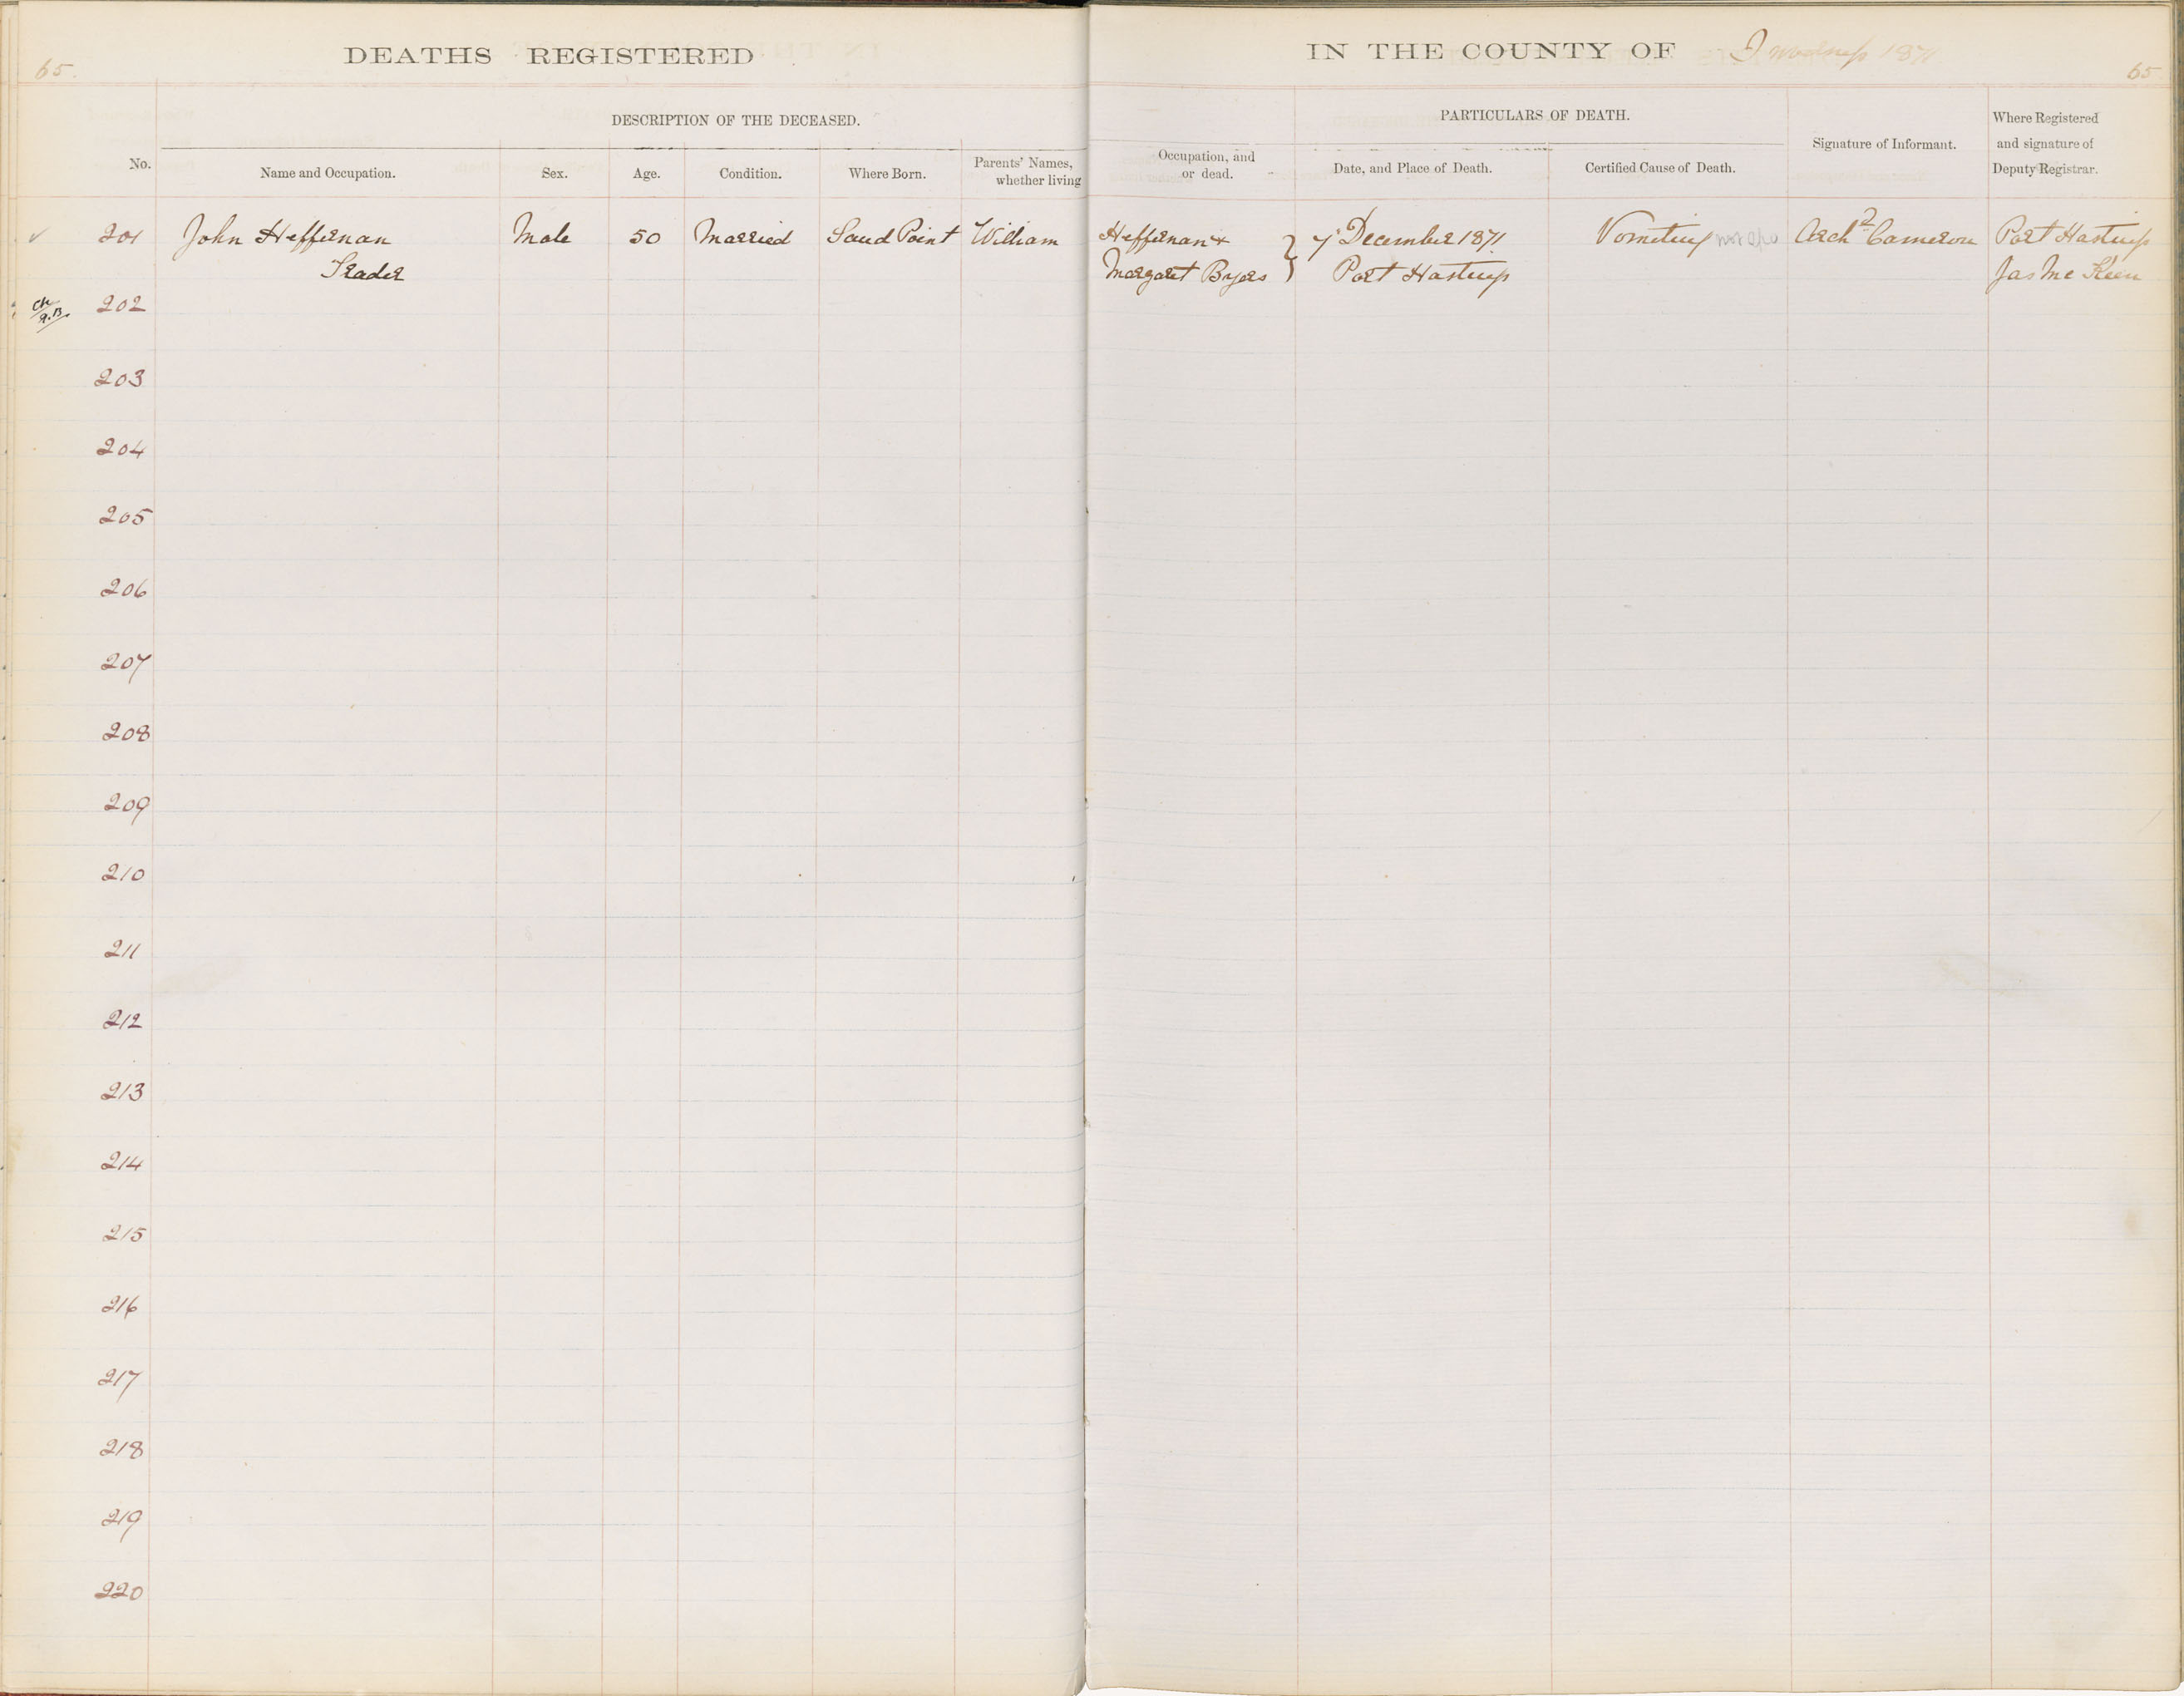 65.
DEATHS REGISTERED
IN THE COUNTY OF Inverness 1871
65
DESCRIPTION OF THE DECEASED.
PARTICULARS OF DEATH.
No.
Name and Occupation.
Sex.
Age.
Condition.
Where Born.
Parents' Names,
whether living
Occupation, and
or dead.
Date, and Place of Death.
Certified Cause of Death.
Signature of Informant.
Where Registered
and signature of
Deputy Registrar.
201 John Heffernan Male 50 Married Sand Point William Heffernan & 7 December 1871 Vomiting Archd Cameron Port Hastings
Trader Margaret Byers Port Hastings Jas McKeen
202
203
204
205
206
207
208
209
210
211
212
213
214
215
216
217
218
219
220